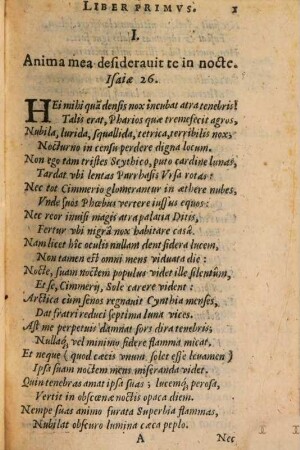 LIBER PRIMVS. 1
I.
Anima mea desideravit te in nocte.
Isaiæ 26.
HEi mihi quã densis nox incubat atra tenebris!
Talis erat, Pharios quæ tremefecit agros,
Nubila, lurida, squallida, tetrica, terribilis nox;
Nocturno in censu perdere digna locum.
Non ego tam tristes Scythico, puto cardine lunas,
Tardat ubi lentas Parrhasis Vrsa rotas:
Nec tot Cimmerio glomerantur in æthere nubes,
Vnde suos Phœbus vertere jussus equos:
Nec reor invisi magis atra palatia Ditis,
Fertur ubi nigrã nox habitare casã.
Nam licet hîc oculis nullam dent sidera lucem,
Non tamen est omni mens viduata die:
Nocte, suam noctem populus videt ille silentûm,
Et se, Cimmerij, Sole carere vident:
Arctica cùm senos regnavit Cynthia menses,
Dat fratri reduci septima luna vices.
Ast me perpetuis damnat sors dira tenebris;
Nullaq́; vel minimo sidere flamma micat.
Et neque (quod cæcis unum solet esse levamen)
Ipsa suam noctem mens miseranda videt.
Quin tenebras amat ipsa suas; lucemq́; perosa,
Vertit in obscœnæ noctis opaca diem.
Nempe suas animo furata Superbia flammas,
Nubilat obscuro lumina cæca peplo.
A Nec